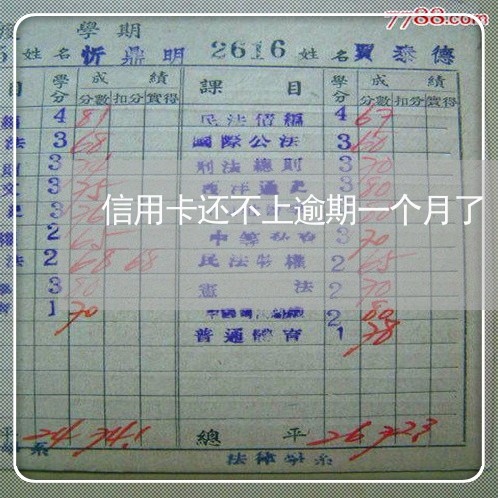 7788.com
學期
姓名 忻鼎明 2616 姓名 賈泰德
目 學分 成績 課目 學分 成績
分數 扣分 實得 分數 扣分 實得
4 81 民法債編 4 67
法 3 68 國際公法 3 60
3 刑法總則 3 70
3 75 西洋通史 3 80
信用卡还不上逾期一个月了
2 65 3 70
法 2 68 68 民法物權 2 65
3 80 憲法 2 70
1 70 2 80
普通體育 1 78
平 24 74.1 總平 26 72.3
系 法律學系